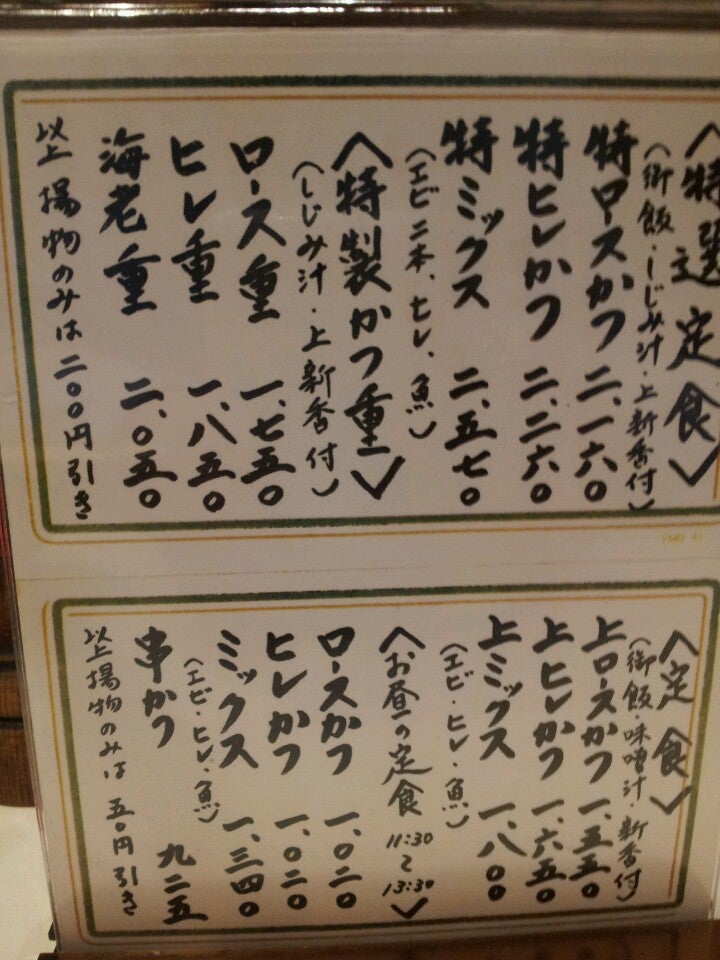 〈特選定食〉
(御飯・しじみ汁・上新香付)
特ロースかつ 二、一六〇
特ヒレかつ 二、二六〇
特ミックス 二、五七〇
(エビ二本、ヒレ、魚)
〈特製かつ重〉
(しじみ汁・上新香付)
ロース重 一、七五〇
ヒレ重 一、八五〇
海老重 二、〇五〇
以上揚物のみは二〇〇円引き
〈定食〉
(御飯・味噌汁・新香付)
上ロースかつ 一、五五〇
上ヒレかつ 一、六五〇
上ミックス 一、八〇〇
(エビ・ヒレ・魚)
〈お昼の定食 11:30〜13:30〉
ロースかつ 一、〇二〇
ヒレかつ 一、〇二〇
ミックス 一、三四〇
(エビ・ヒレ・魚)
串かつ 九二五
以上揚物のみは 五〇円引き